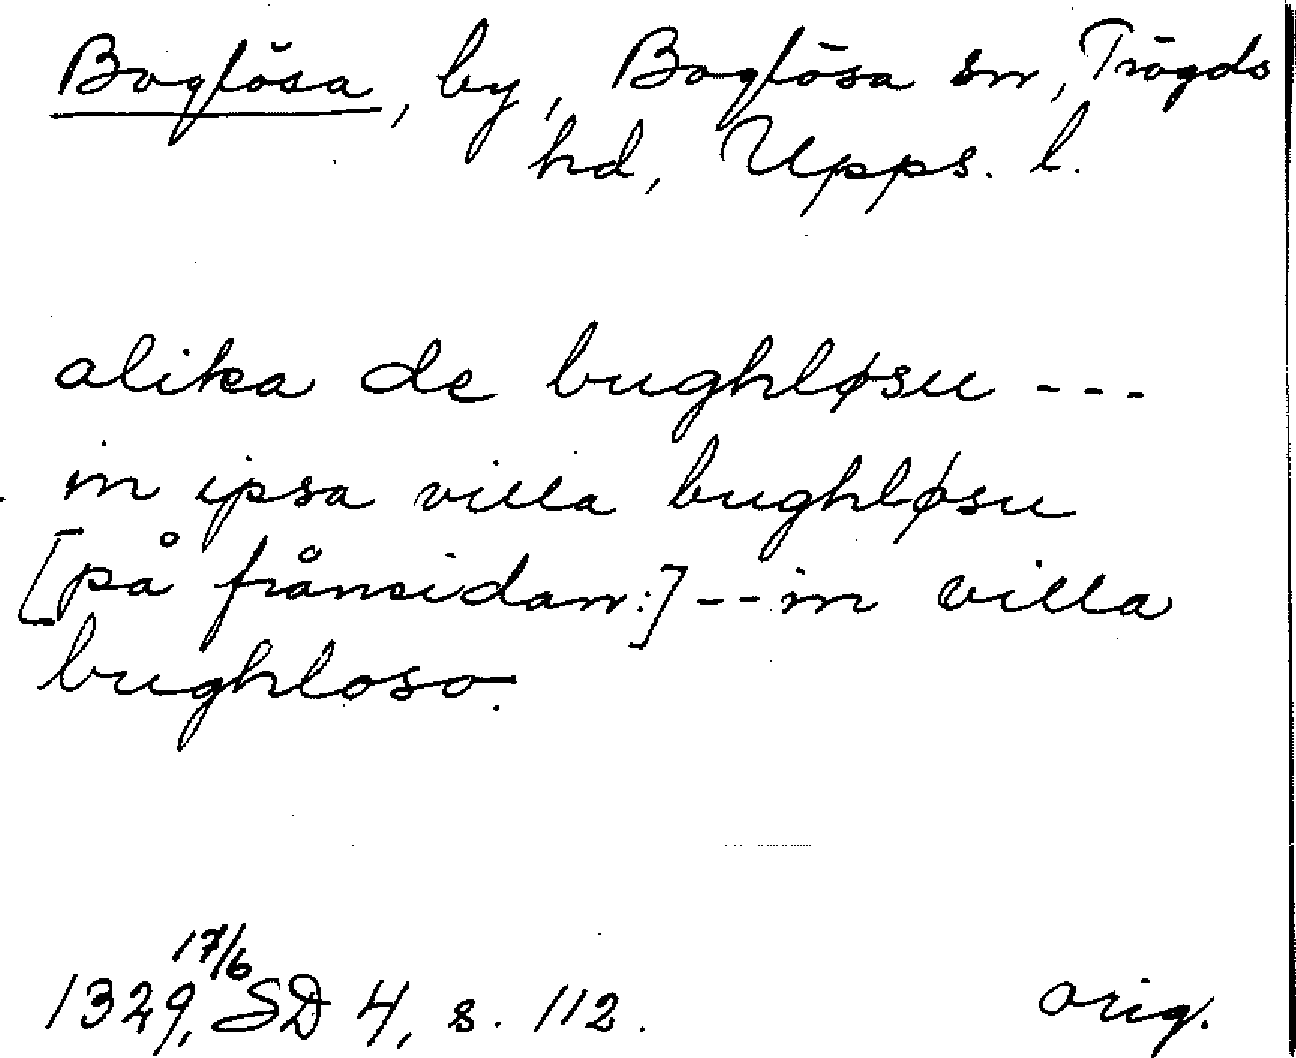 Boglösa, by, Boglösa sn, Trögds
hd, Upps. l.
alika de bughløsu ---
in ipsa villa bughløsu
[på frånsidan:] --- in villa
bughloso.
17/6
1329, SD 4, s. 112. orig.